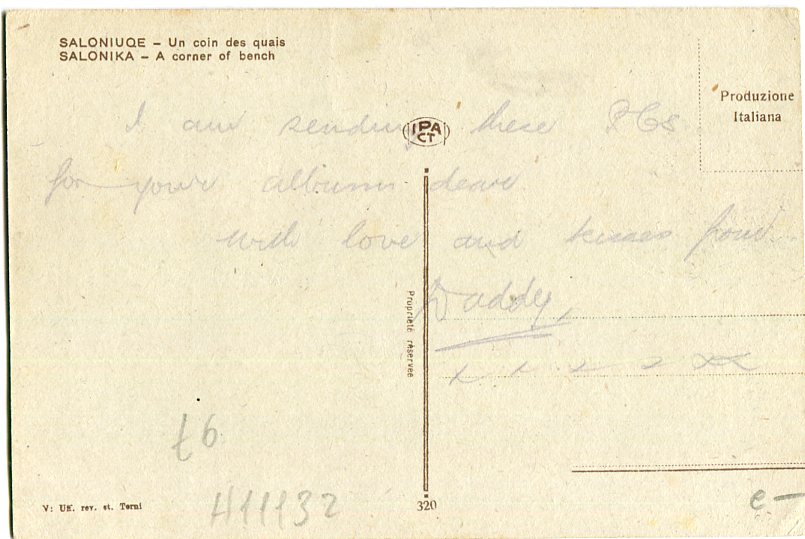 SALONIUQE – Un coin des quais
SALONIKA – A corner of bench
Produzione
Italiana
IPA
CT
I am sending these PCs
for your album dear
with love and kisses from
Daddy,
x x x x x x
Propriété réservée
£6
H11132
V: Uff. rev. st. Terni
320
e –